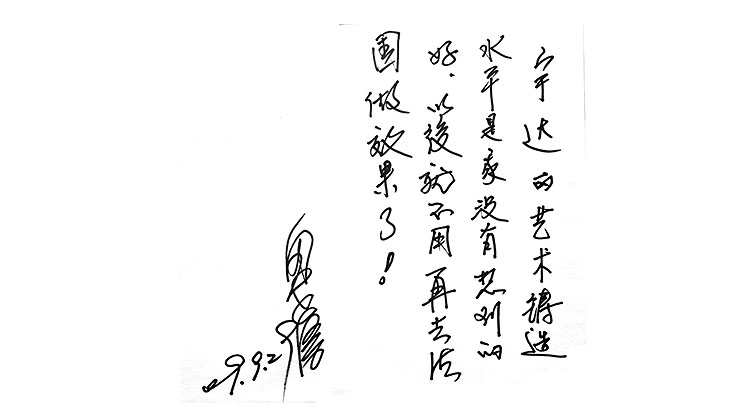 宇达的艺术铸造
水平是我没有想到的
好．以後就不用再去法
国做效果了！
09.9.2